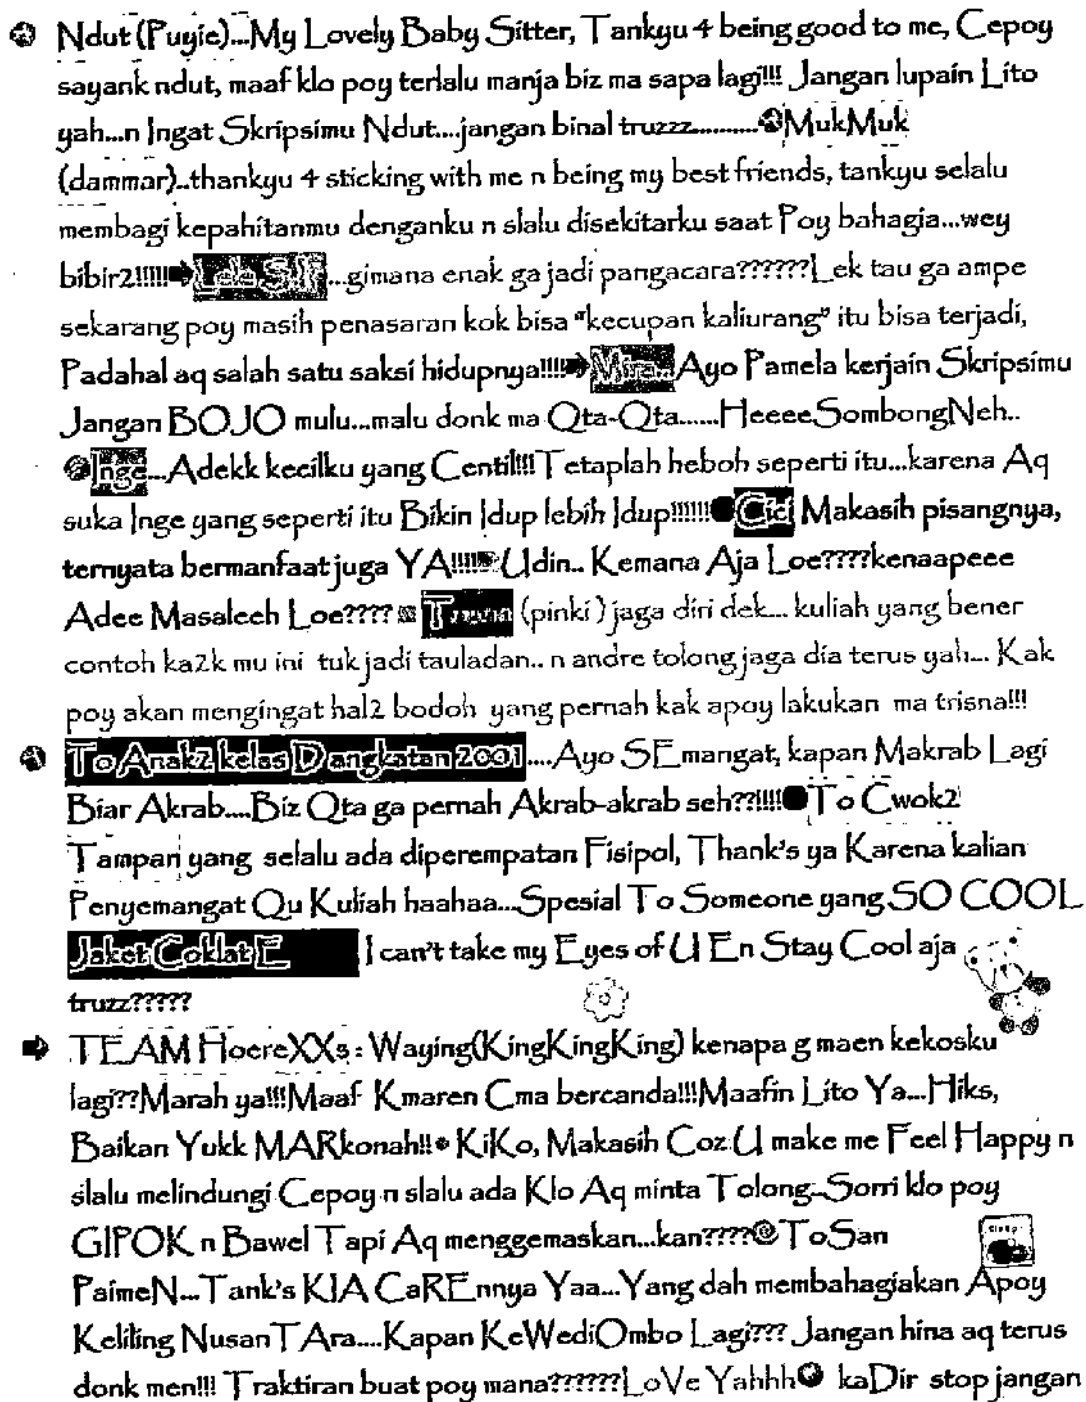 Ndut (Puyie)...My Lovely Baby Sitter, Tankyu 4 being good to me, Cepoy
sayank ndut, maaf klo poy terlalu manja biz ma sapa lagi!!! Jangan lupain Lito
yah...n Ingat Skripsimu Ndut....jangan binal truzzz...........MukMuk
(dammar)..thankyu 4 sticking with me n being my best friends, tankyu selalu
membagi kepahitanmu denganku n slalu disekitarku saat Poy bahagia...wey
bibir2!!!!! ...gimana enak ga jadi pangacara??????Lek tau ga ampe
sekarang poy masih penasaran kok bisa "kecupan kaliurang" itu bisa terjadi,
Padahal aq salah satu saksi hidupnya!!!! Mira... Ayo Pamela kerjain Skripsimu
Jangan BOJO mulu...malu donk ma Qta-Qta......HeeeeSombongNeh..
Inge...Adekk kecilku yang Centil!!!Tetaplah heboh seperti itu...karena Aq
suka Inge yang seperti itu Bikin Idup lebih Idup!!!!!! Cici Makasih pisangnya,
ternyata bermanfaat juga YA!!!! Udin.. Kemana Aja Loe????kenaapeee
Adee Masaleeh Loe???? (pinki) jaga diri dek... kuliah yang bener
contoh ka2k mu ini tuk jadi tauladan.. n andre tolong jaga dia terus yah... Kak
poy akan mengingat hal2 bodoh yang pernah kak apoy lakukan ma trisna!!!
To Anak2 kelas D angkatan 2001....Ayo SEmangat, kapan Makrab Lagi
Biar Akrab....Biz Qta ga pernah Akrab-akrab seh??!!!! To Cwok2
Tampan yang selalu ada diperempatan Fisipol, Thank's ya Karena kalian
Penyemangat Qu Kuliah haahaa...Spesial To Someone yang SO COOL
Jaket Coklat E I can't take my Eyes of U En Stay Cool aja
truzz?????
TEAM HoereXXs : Waying(KingKingKing) kenapa g maen kekosku
lagi??Marah ya!!!Maaf Kmaren Cma bercanda!!!Maafin Lito Ya...Hiks,
Baikan Yukk MARkonah!! KiKo, Makasih Coz U make me Feel Happy n
slalu melindungi Cepoy n slalu ada Klo Aq minta Tolong...Sorri klo poy
GIPOK n Bawel Tapi Aq menggemaskan...kan???? ToSan
PaimeN...Tank's KIA CaREnnya Yaa...Yang dah membahagiakan Apoy
Keliling NusanTAra....Kapan KeWediOmbo Lagi??? Jangan hina aq terus
donk men!!! Traktiran buat poy mana??????LoVe Yahhh kaDir stop jangan